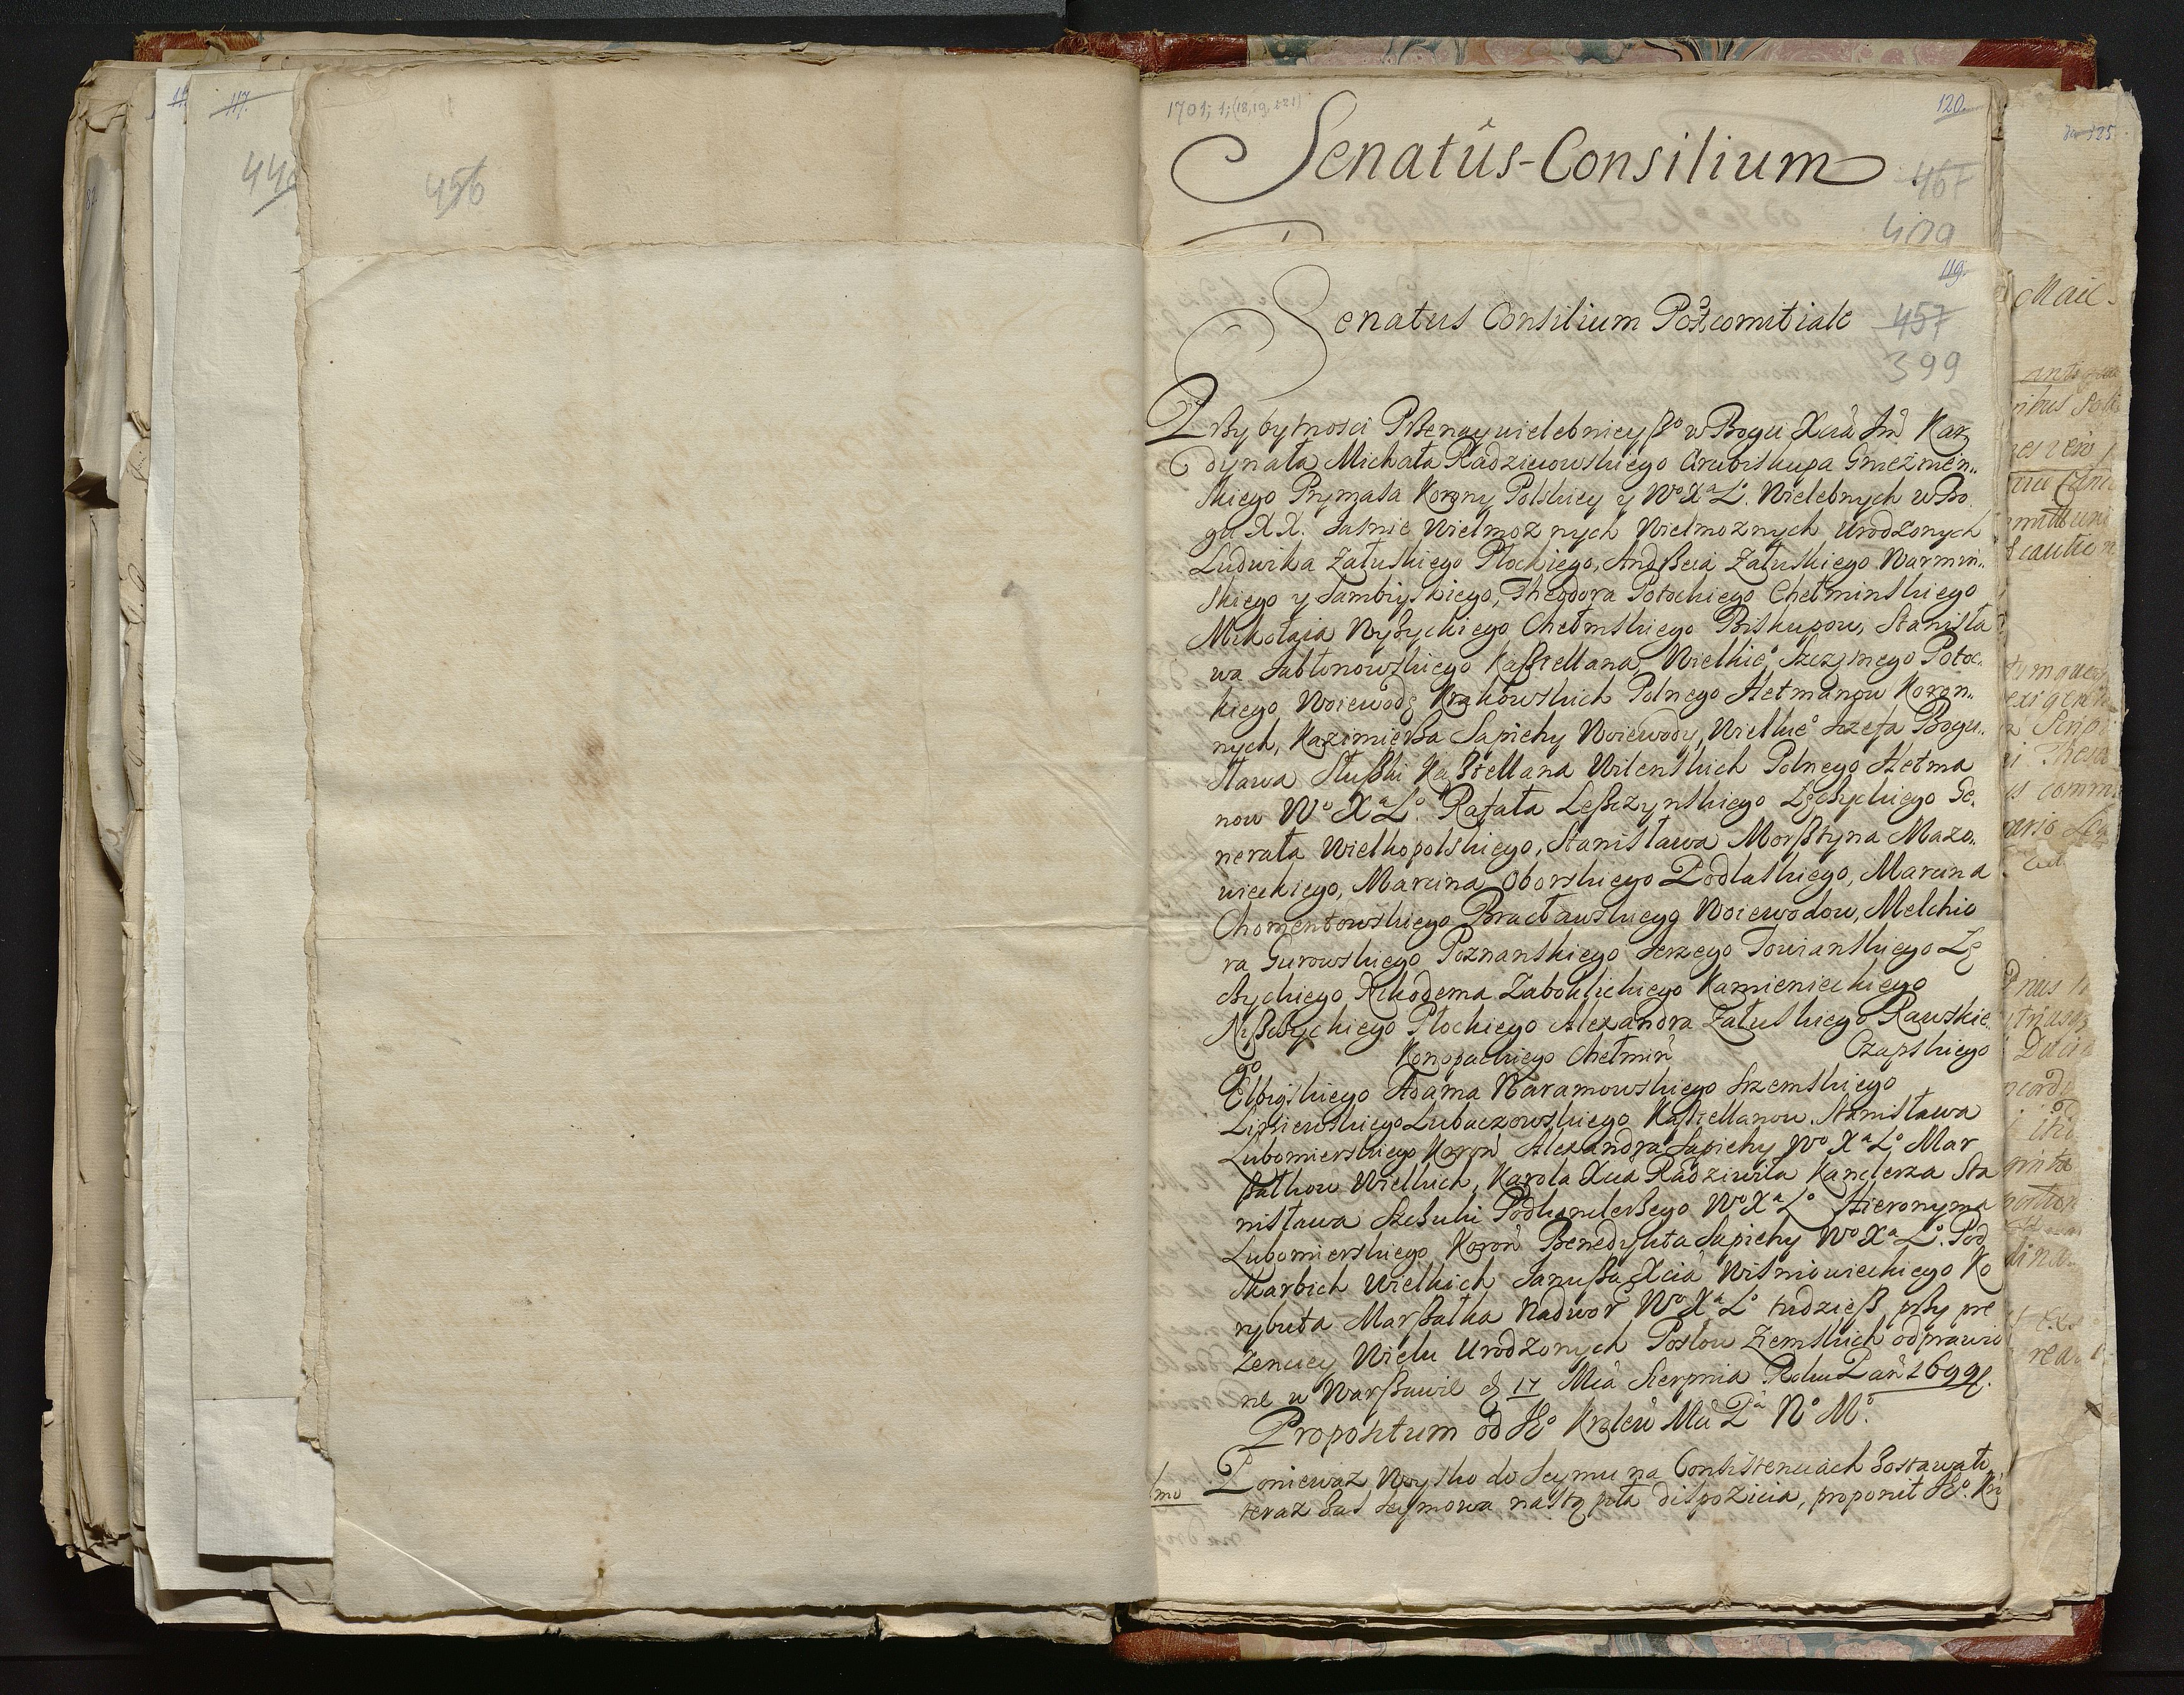 117.
440
456
1701; 1; (18, 19, 221)
120
Senatûs-Consilium
467
479
119.
Senatus Consilium Postcomitiale
457
399
Przy bytnosci Przenaywielebnieyßo w Bogu Xcia Jm Kar
dynała Michała Radzieiowskiego Arcibiskupa Gnieznien..
skiego Prymasa Korony Polskiey y Wo Xa Lo. Wielebnych w Bo
gu XX. Jasnie Wielmoznych Wielmoznych Urodzonych
Ludwika Załuskiego Płockiego, Andrzeia Załuskiego Warmin..
skiego y Sambiyskiego, Theodora Potockiego Chełminskiego
Mikołaia Wyżyckiego Chełmskiego Biskupow, Stanisła
wa Jabłonowskiego Kaßtellana, Wielkieo Szczęsnego Potoc.
kiego Woiewodę Krakowskich Polnego Hetmanow Koron..
nych, Kazimierßa Sapiehy Woiewody, Wielkieo Jozefa Bogu..
sława Słußki Kaßtellana Wilenskich Polnego Hetma
now Wo Xa Lo. Rafała Leßczynskiego Łęczyckiego Ge.
nerała Wielkopolskiego, Stanisława Morßtyna Mazo..
wieckiego, Marcina Oborskiego Podlaskiego, Marcina
Chomentowskiego Bracławskiego Woiewodow, Melchio
ra Gurowskiego Poznanskiego Jerzego Towianskiego Łę
czyckiego Nikodema Zaboklickiego Kamienieckiego
Nißczyckiego Płockiego Alexandra Załuskiego Rawskie.
go Konopackiego Chełmin Czapskiego
Elbigskiego Adama Naramowskiego Srzemskiego
Lipiewskiego Lubaczowskiego Kaßtellanow. Stanisława
Lubomierskiego Koron Alexandra Sapiehy Wo Xa Lo Mar
ßałkow Wielkich, Karola Xcia Radziwiła Kanclerza Sta
nisława Szczuki Podkanclerßego Wo Xa Lo Hieronyma
Lubomierskiego Koron Benedykta Sapiehy Wo Xa Lo. Pod
skarbich Wielkich Janußa Xcia Wisniowieckiego Ko
rybuta Marßałka Nadwor Wo Xa Lo tudzieß przy pre
zenciey Wielu Urodzonych Posłow Ziemskich odprawio
ne w Warßawie d 17 Mca Sierpnia Roku Pan 1699.
Propositum od Jeo Krolew Mci Pa No Mo.
1mo Poniewaz Woysko do Seymu na Consistenciach zostawało,
teraz zas Seymowa nastąpiła dispozicia, proponit Jeo. Kr